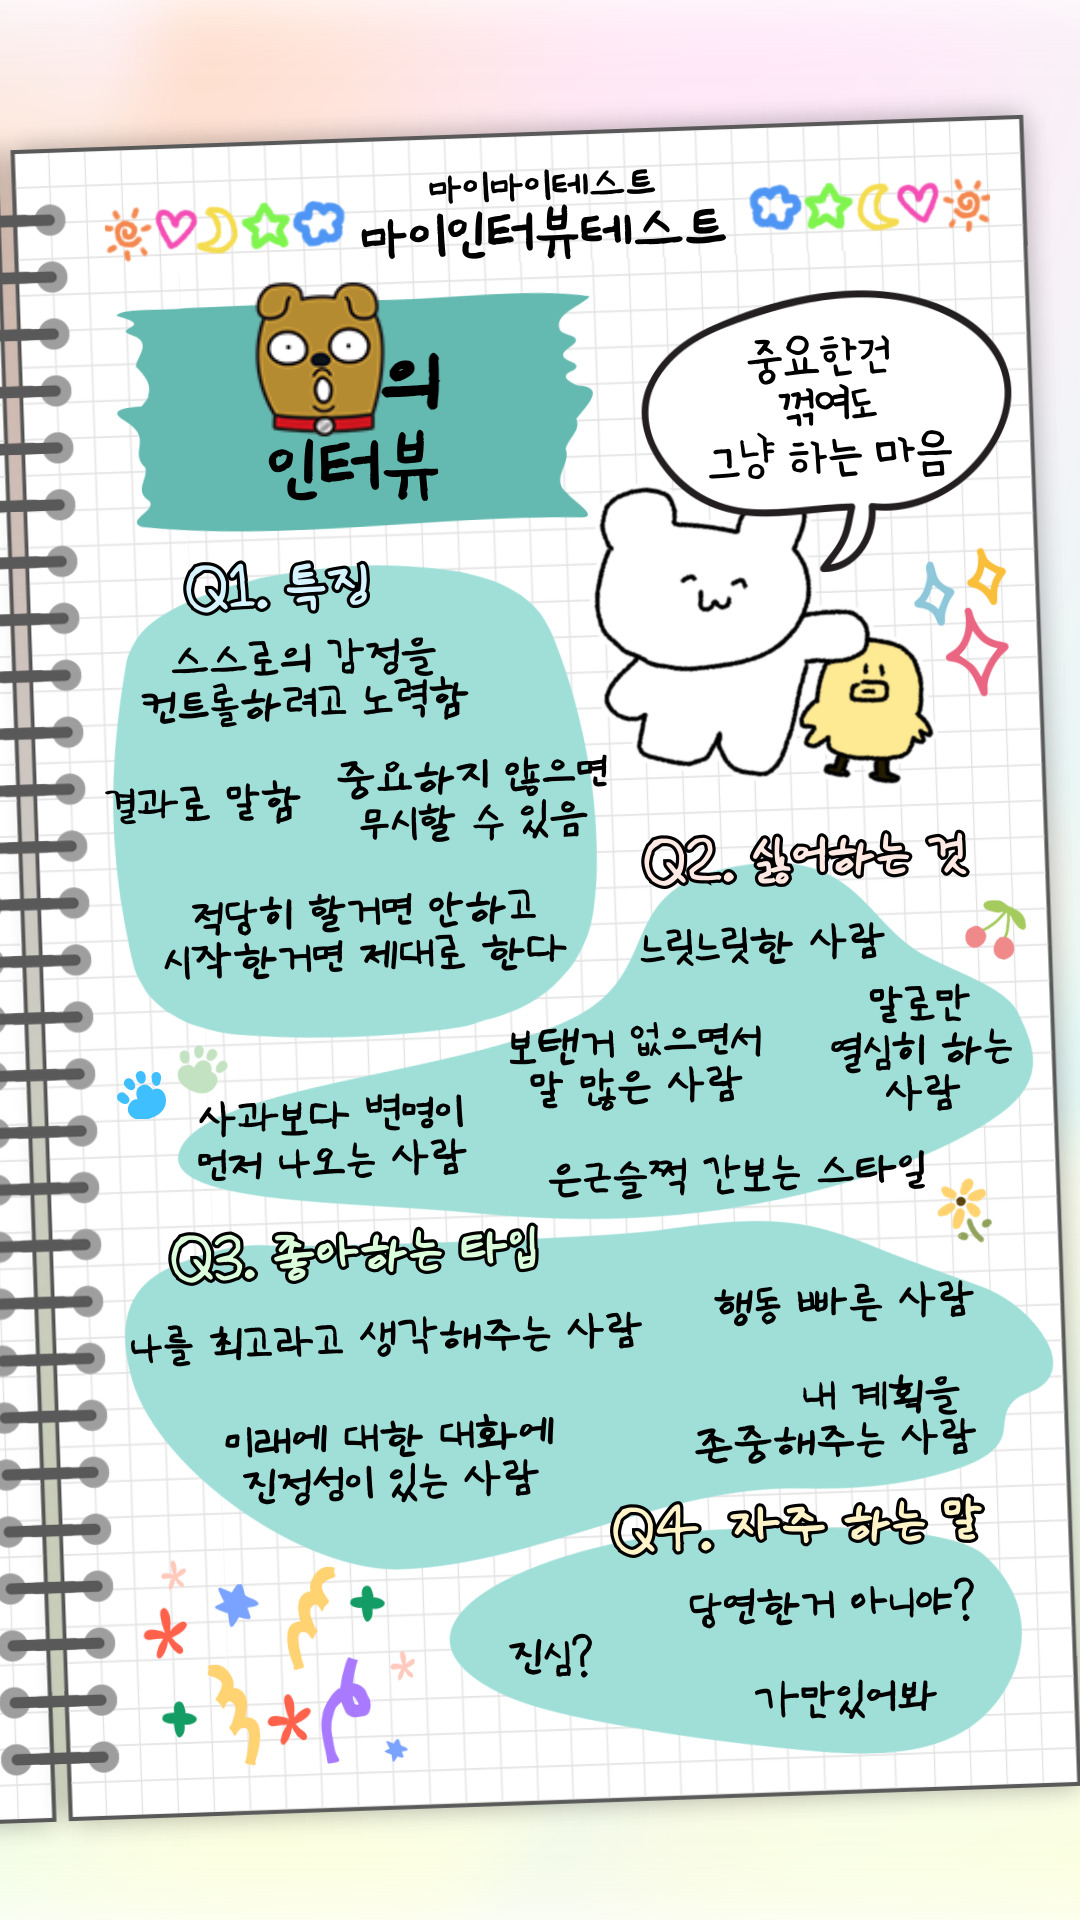 마이마이테스트
마이인터뷰테스트
의
인터뷰
중요한건
꺾여도
그냥 하는 마음
Q1. 특징
스스로의 감정을
컨트롤하려고 노력함
결과로 말함
중요하지 않으면
무시할 수 있음
적당히 할거면 안하고
시작한거면 제대로 한다
Q2. 싫어하는 것
느릿느릿한 사람
보탠거 없으면서
말 많은 사람
말로만
열심히 하는
사람
사과보다 변명이
먼저 나오는 사람
은근슬쩍 간보는 스타일
Q3. 좋아하는 타입
나를 최고라고 생각해주는 사람
행동 빠른 사람
내 계획을
존중해주는 사람
미래에 대한 대화에
진정성이 있는 사람
Q4. 자주 하는 말
당연한거 아니야?
진심?
가만있어봐